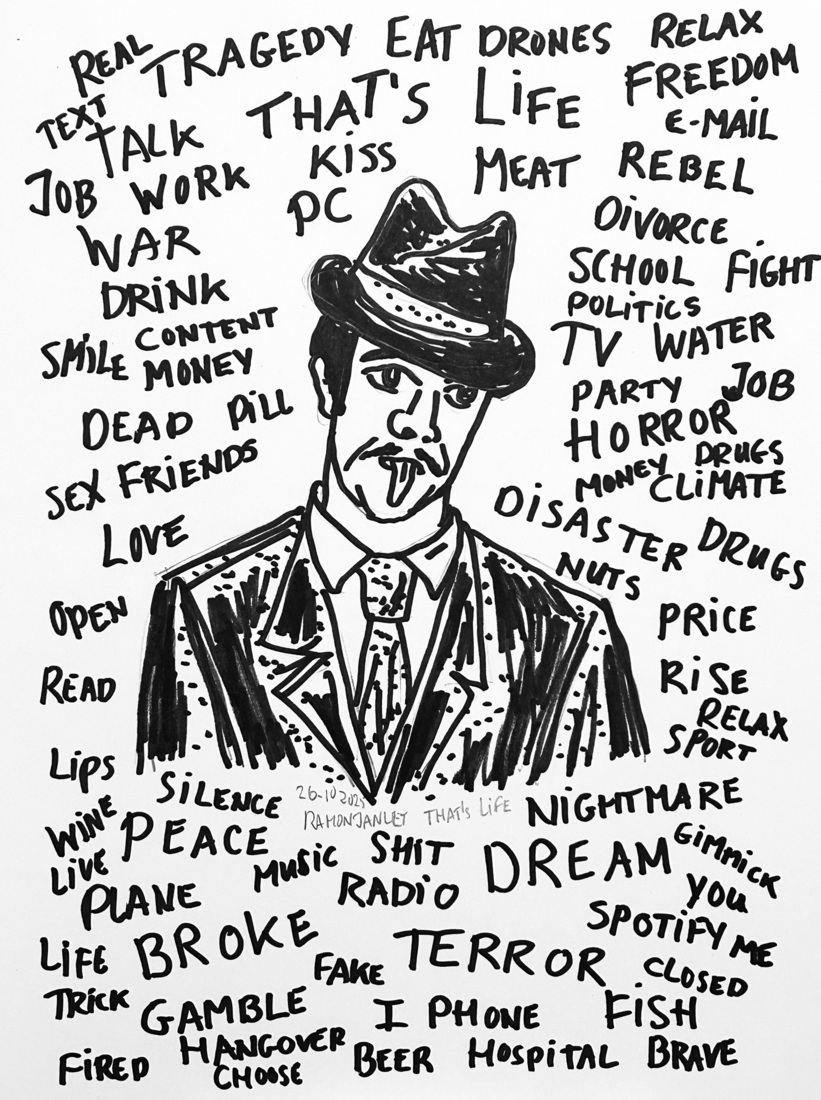 REAL TRAGEDY EAT DRONES RELAX
TEXT TALK THAT'S LIFE FREEDOM
E-MAIL
JOB WORK KISS MEAT REBEL
PC
WAR DIVORCE
DRINK SCHOOL FIGHT
POLITICS
SMILE CONTENT TV WATER
MONEY
DEAD PILL PARTY JOB
HORROR
SEX FRIENDS MONEY DRUGS
CLIMATE
LOVE DISASTER DRUGS
NUTS
OPEN PRICE
READ RISE
RELAX
LIPS SPORT
SILENCE 26-10 NIGHTMARE
RAMONJANLET THAT'S LIFE
WINE PEACE SHIT DREAM GIMMICK
LIVE MUSIC
PLANE RADIO YOU
SPOTIFY ME
LIFE BROKE FAKE TERROR CLOSED
TRICK GAMBLE I PHONE FISH
FIRED HANGOVER BEER HOSPITAL BRAVE
CHOOSE